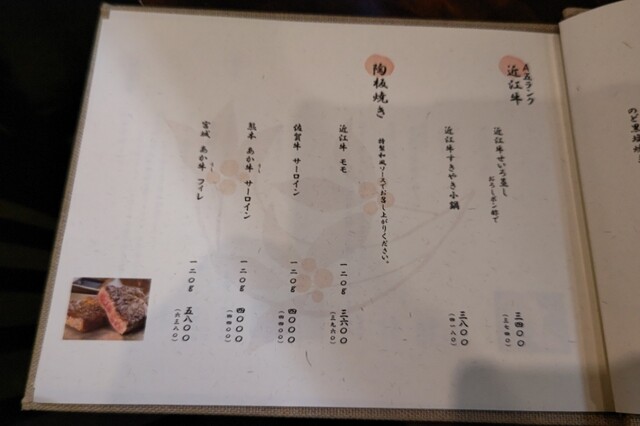 A5ランク
近江牛
近江牛せいろ蒸し
おろしポン酢で
三四〇〇
(三七四〇)
近江牛すきやき小鍋
三八〇〇
(四一八〇)
陶板焼き
特製和風ソースでお召し上がりください。
近江牛 モモ
一二〇g
三六〇〇
(三九六〇)
佐賀牛 サーロイン
一二〇g
四〇〇〇
(四四〇〇)
熊本 あか牛 サーロイン
うし
一二〇g
四〇〇〇
(四四〇〇)
宮城 あか牛 フィレ
うし
一二〇g
五八〇〇
(六三八〇)
のど黒